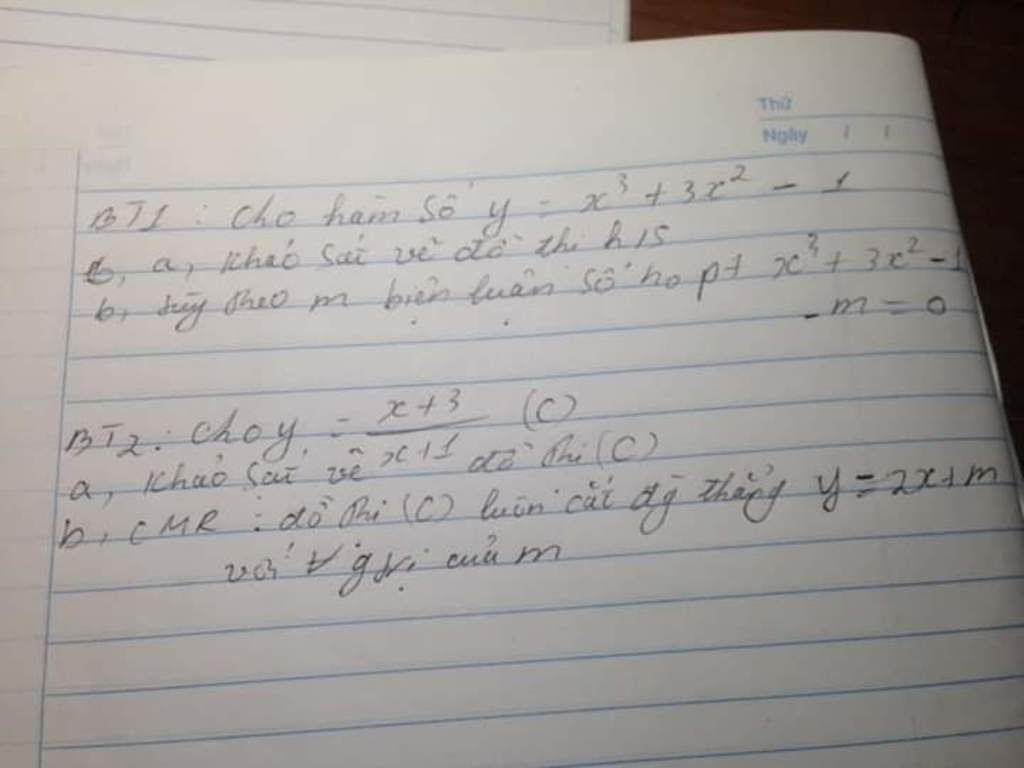 Thứ
Ngày / /
BT1 : Cho hàm số y = x³ + 3x² - 1
a, khảo sát vẽ đồ thị h/s
b, tùy theo m biện luận số n₀ pt x³ + 3x² - 1
- m = 0
BT2 : Cho y = \frac{x+3}{x+1} (C)
a, khảo sát vẽ đồ thị (C)
b, CMR : đồ thị (C) luôn cắt đg thẳng y = 2x + m
với ∀ g trị của m